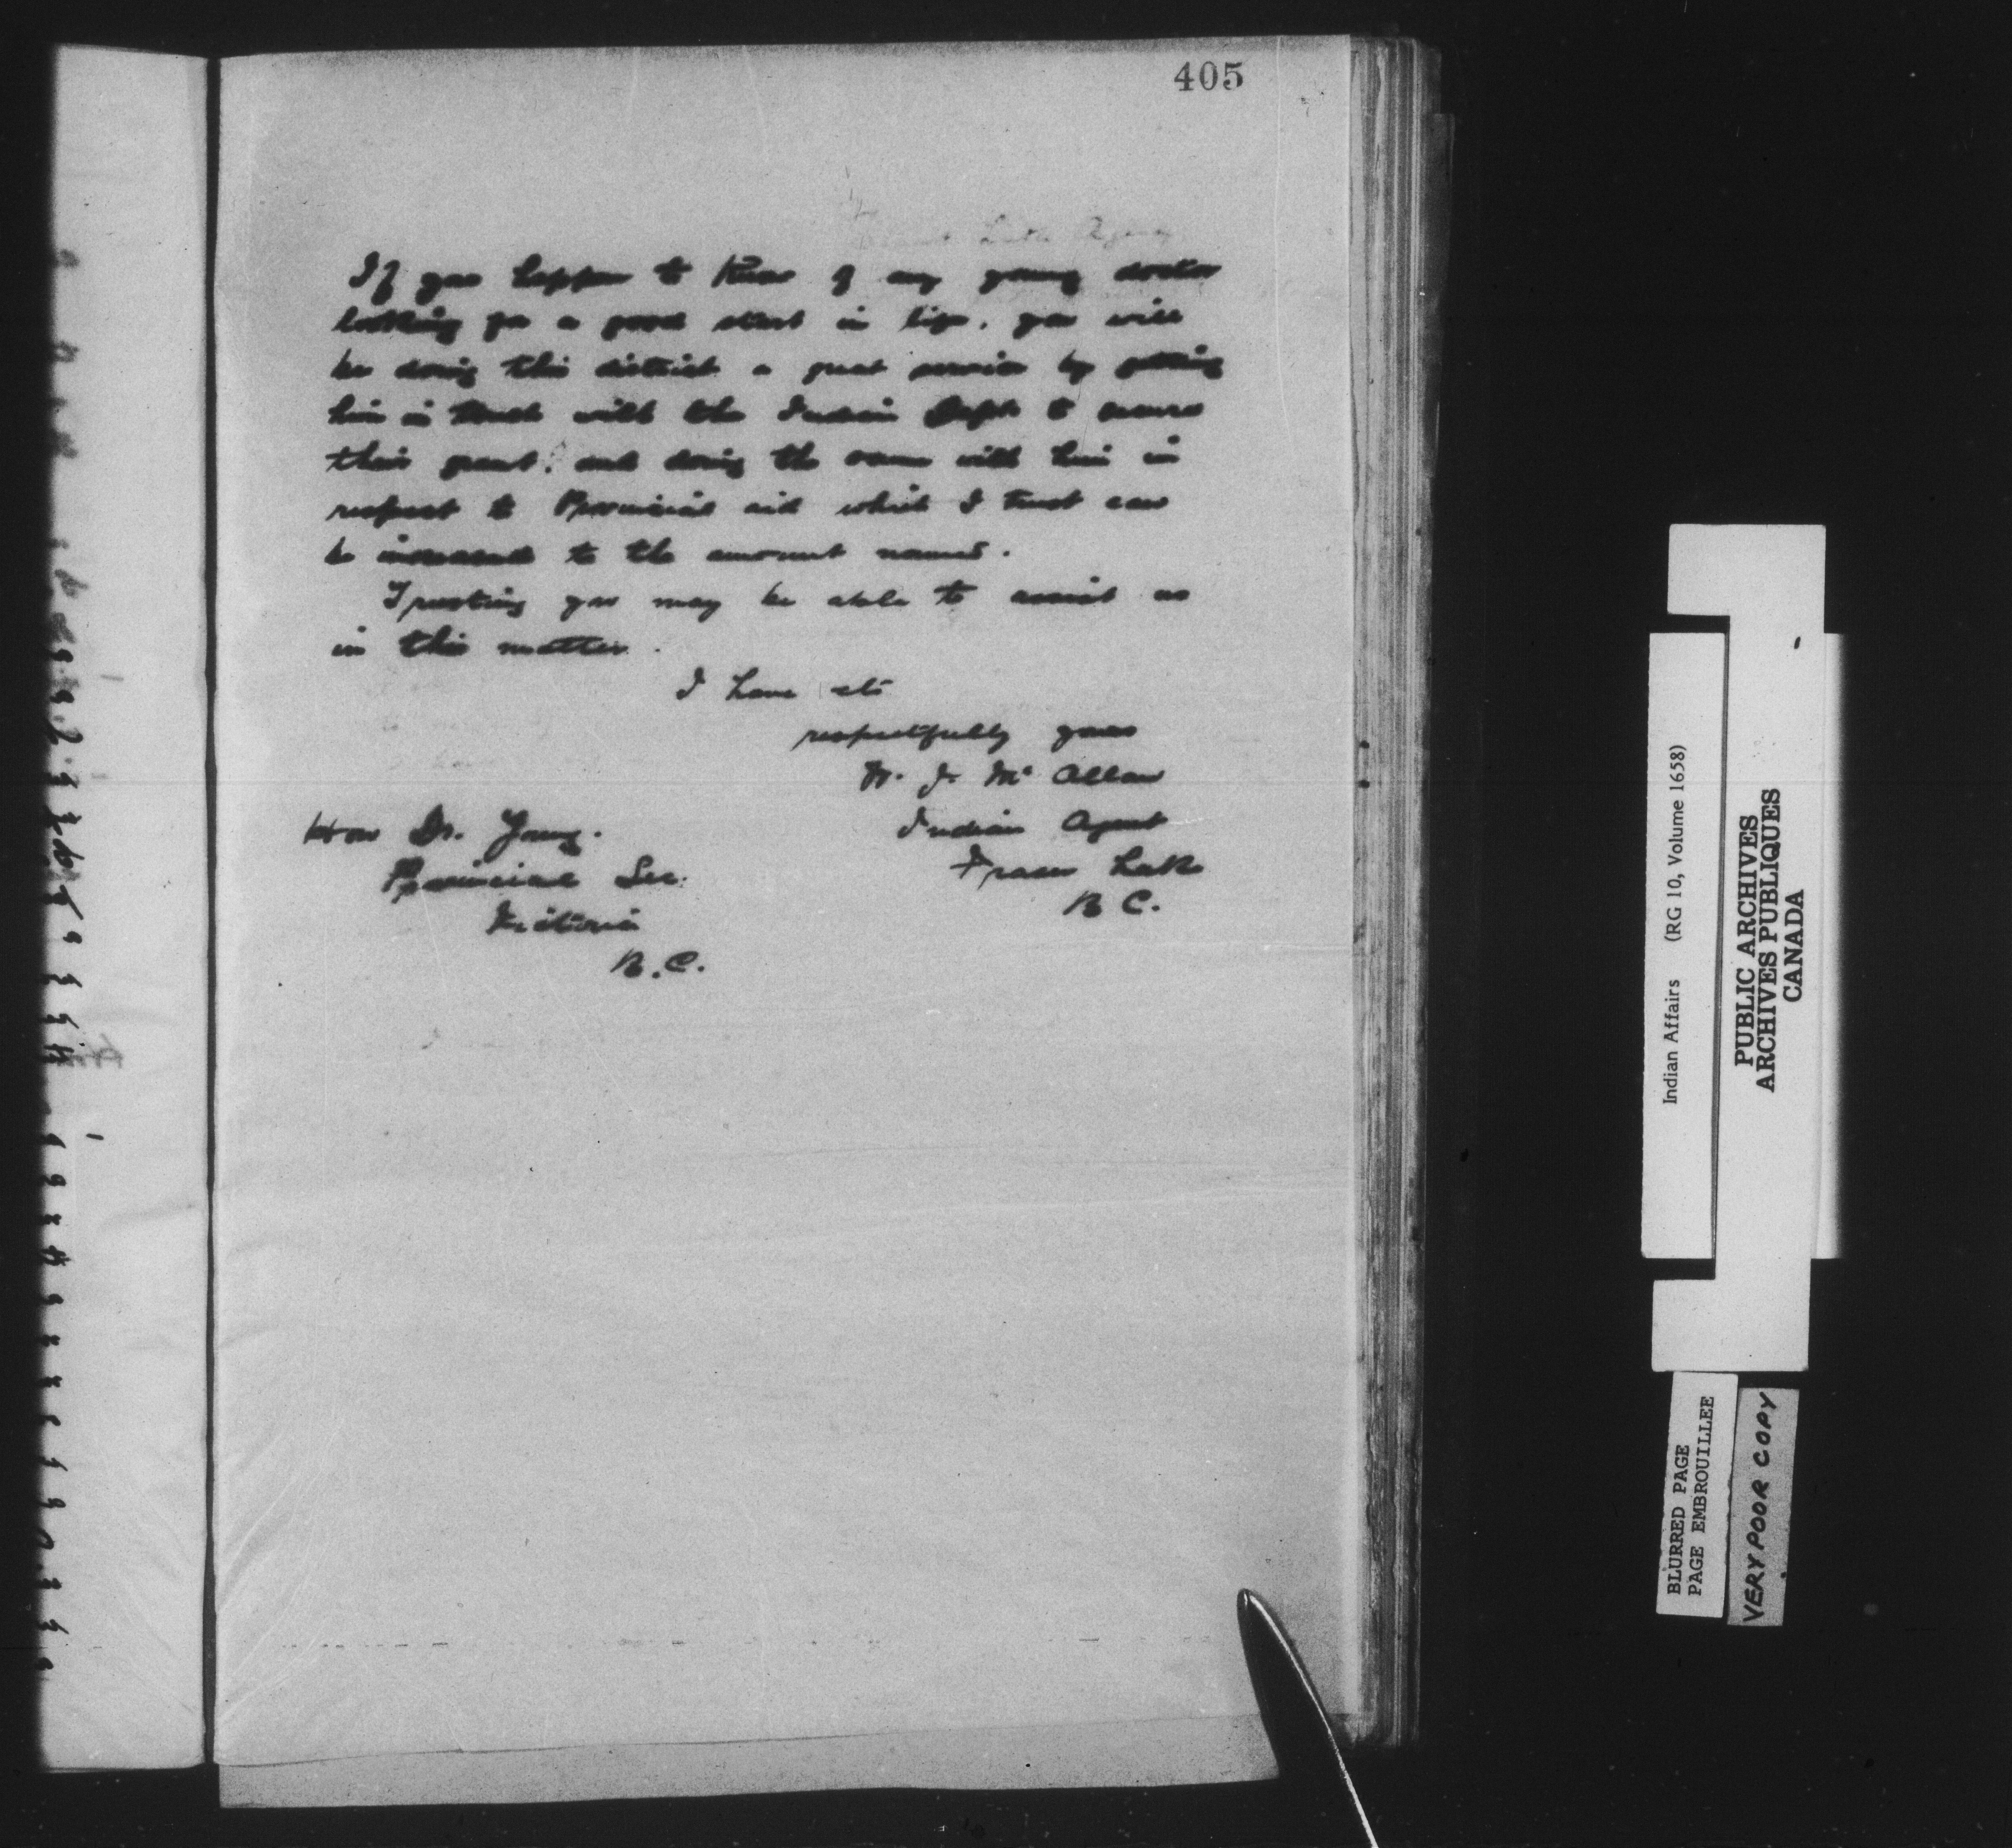 405
If you happen to know of any young doctor
looking for a good start in life, you will
be doing this district a great service by putting
him in touch with the Indian Dept to secure
their grant, and doing the same with him in
respect to Provincial aid which I trust can
be increased to the amount named.
Trusting you may be able to assist us
in this matter.
I have etc
respectfully yours
W. J. McAllan
Indian Agent
Fraser Lake
B C.
Hon Dr. Young.
Provincial Sec.
Victoria
B.C.
Indian Affairs (RG 10, Volume 1658)
PUBLIC ARCHIVES
ARCHIVES PUBLIQUES
CANADA
BLURRED PAGE
PAGE EMBROUILLEE
VERY POOR COPY